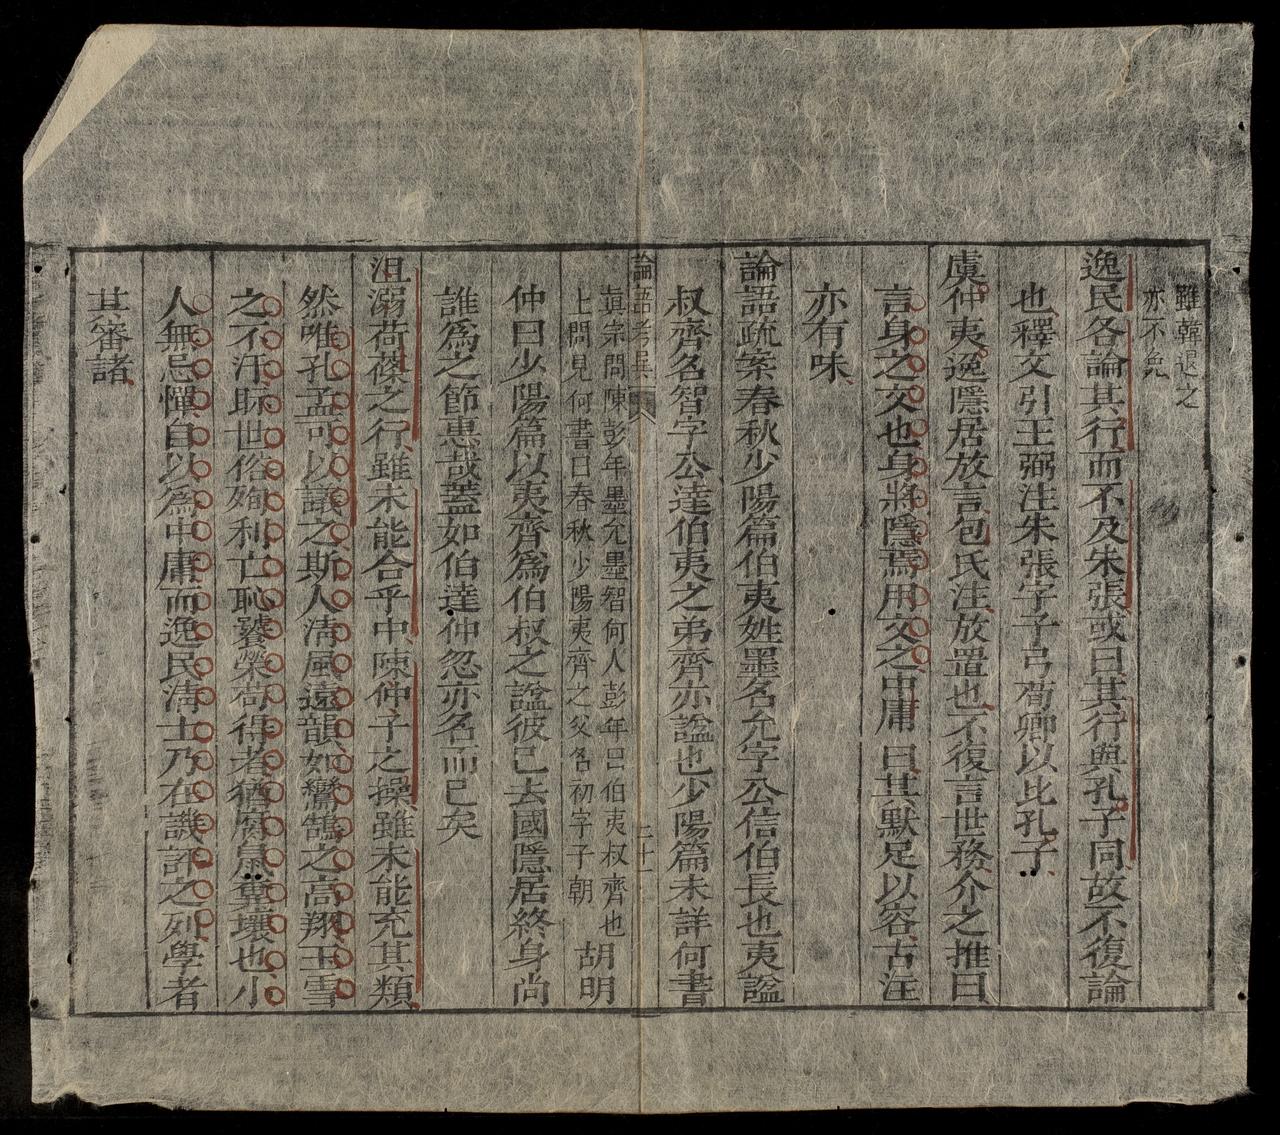 雖韓退之
亦不免
逸民各論其行而不及朱張或曰其行與孔子同故不復論
也釋文引王弼注朱張字子弓荀卿以比孔子
虞仲夷逸隱居放言包氏注放置也不復言世務介之推曰
言身之文也身將隱焉用文之中庸曰其默足以容古注
亦有味
論語疏案春秋少陽篇伯夷姓墨名允字公信伯長也夷諡
叔齊名智字公達伯夷之弟齊亦諡也少陽篇未詳何書
真宗問陳彭年墨允墨智何人彭年曰伯夷叔齊也
上問見何書曰春秋少陽夷齊之父名初字子朝
胡明
仲曰少陽篇以夷齊為伯叔之諡彼已去國隱居終身尚
誰為之節惠哉蓋如伯達仲忽亦名而已矣
沮溺荷蓧之行雖未能合乎中陳仲子之操雖未能充其類
然唯孔孟可以議之斯人清風遠韻如鸞鵠之高翔玉雪
之不汙眎世俗殉利亡恥饕榮苟得者猶腐鼠糞壤也小
人無忌憚自以為中庸而逸民清士乃在譏評之列學者
其審諸
論語考異
二十一